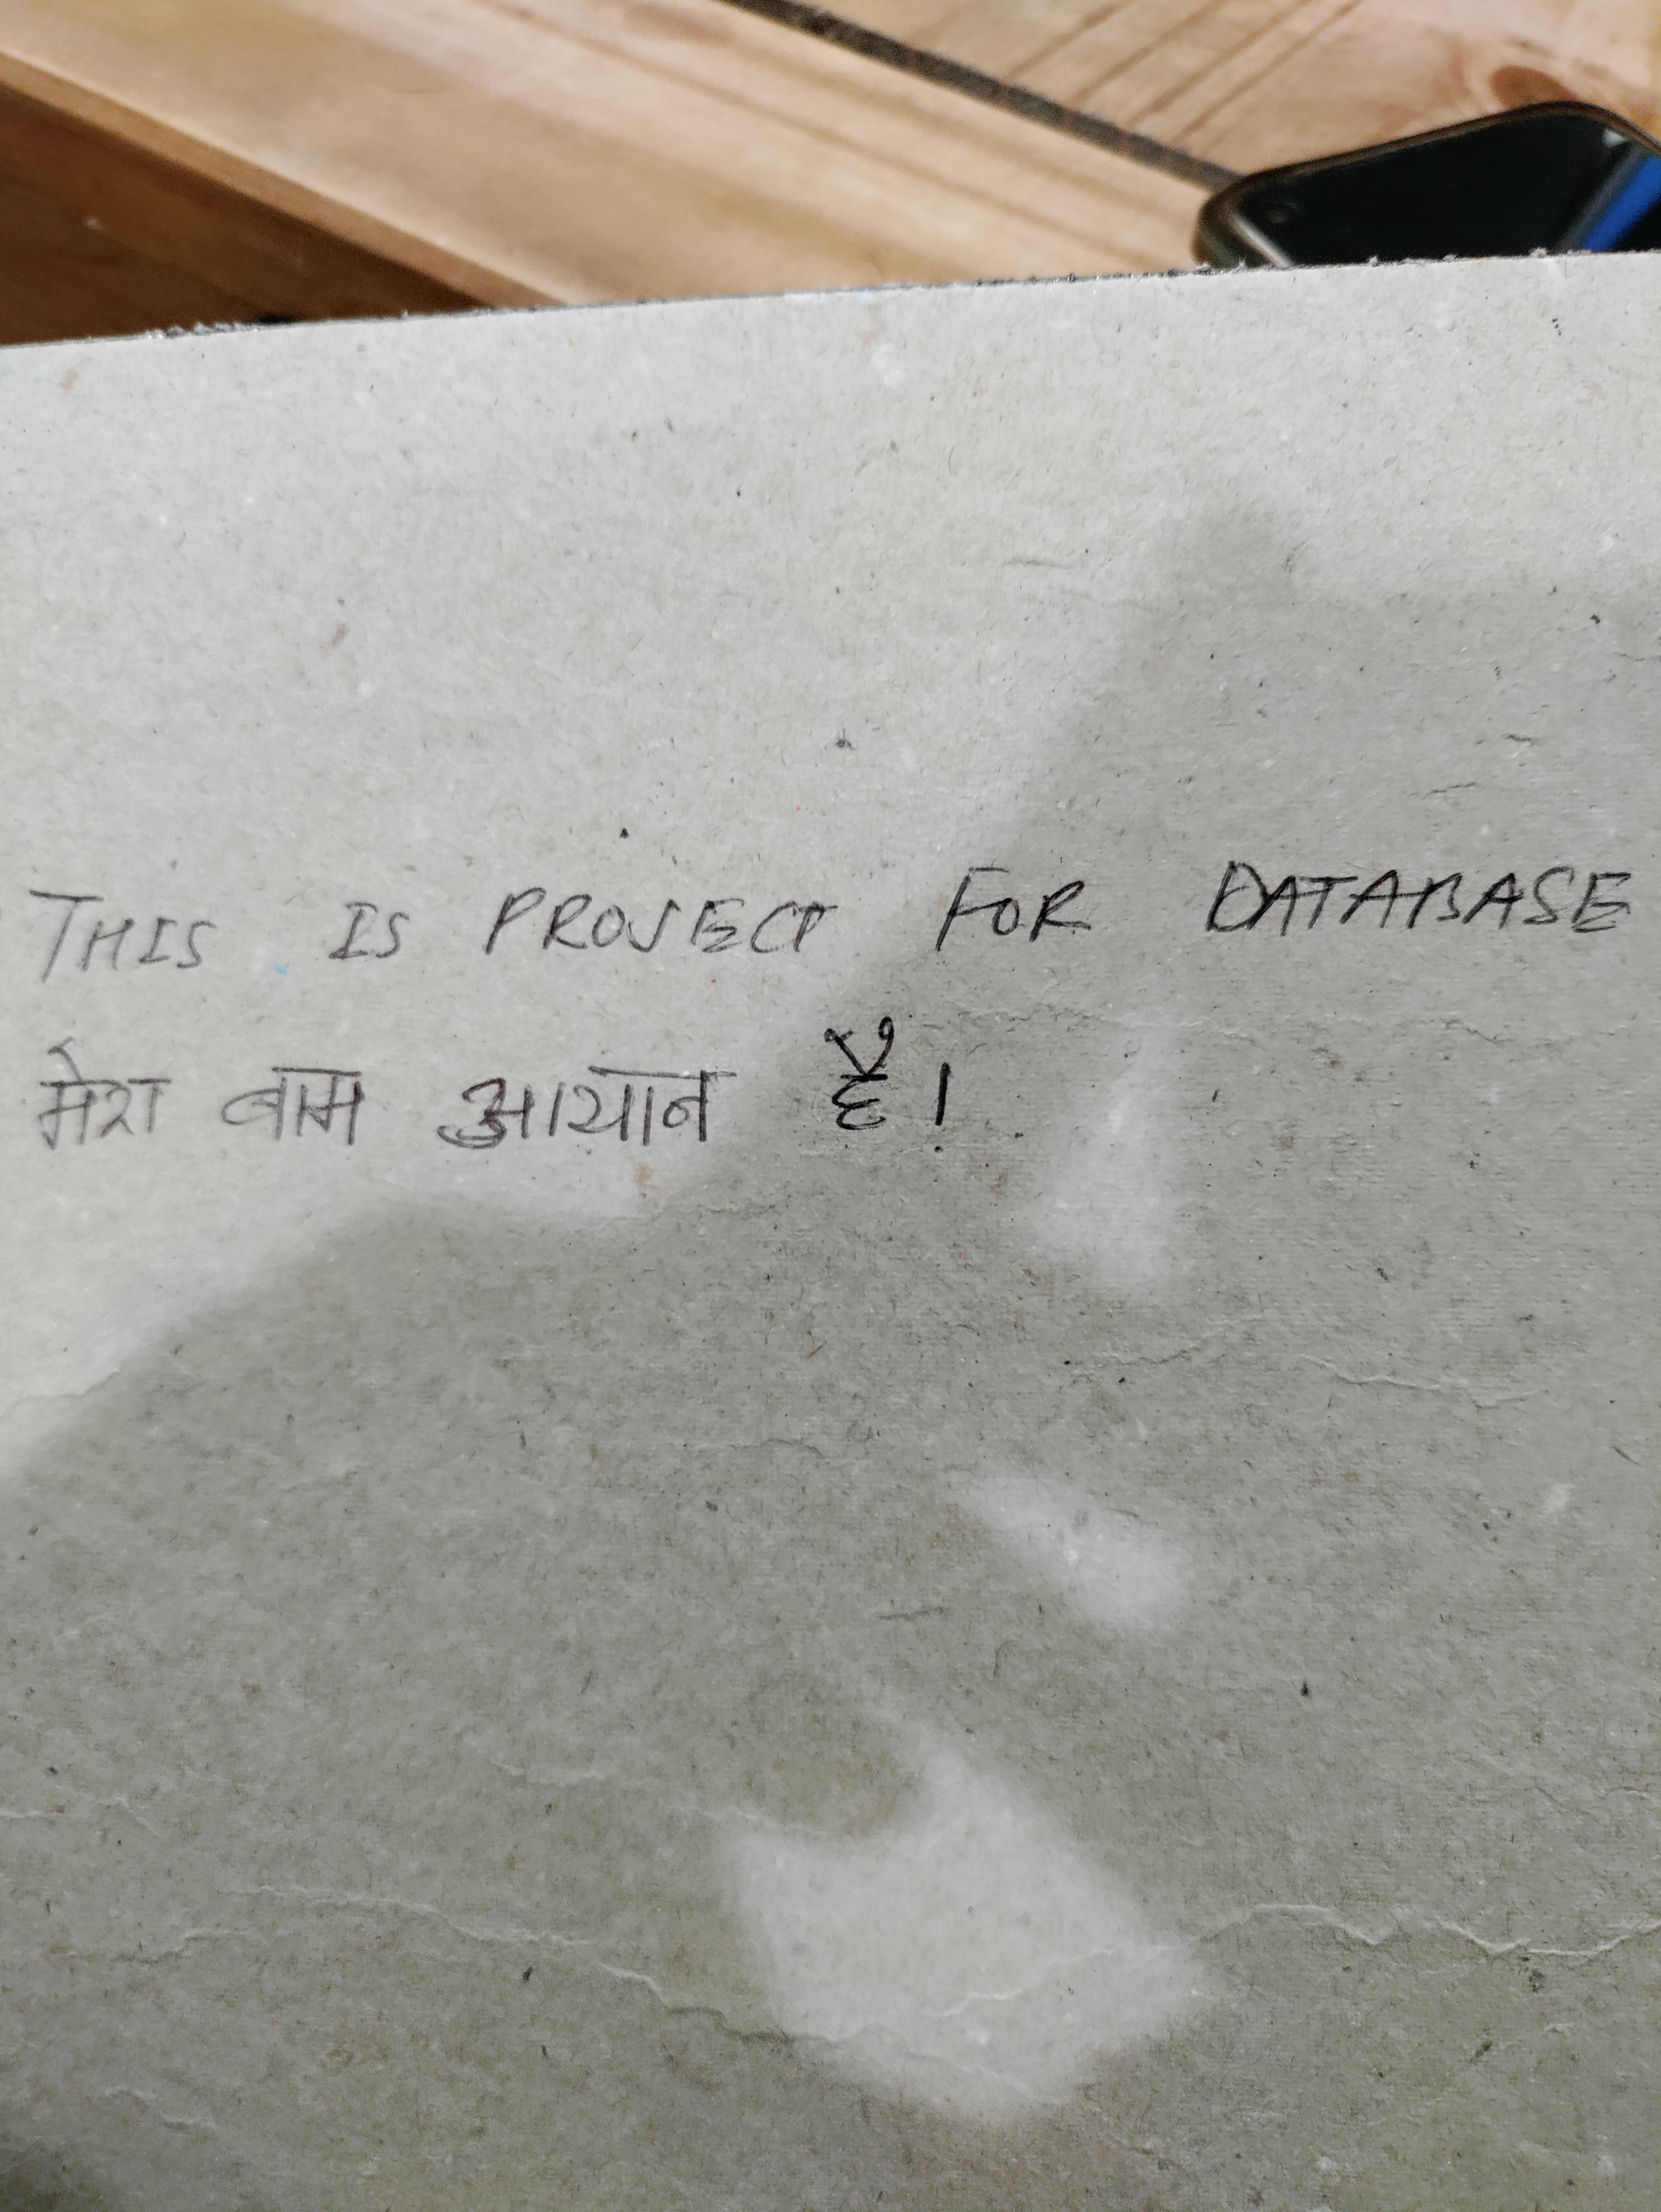 THIS IS PROJECT FOR DATABASE
मेरा नाम आयान है।